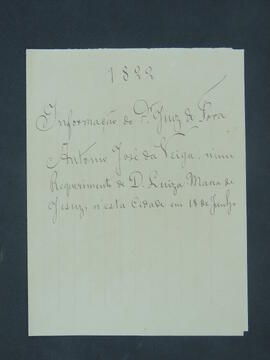 1822
Informação do Dr. Juiz de Fora
Antonio José da Veiga, n'um
Requerimento de D. Luiza Maria de
Jesuz, n'esta Cidade em 18 de Junho.